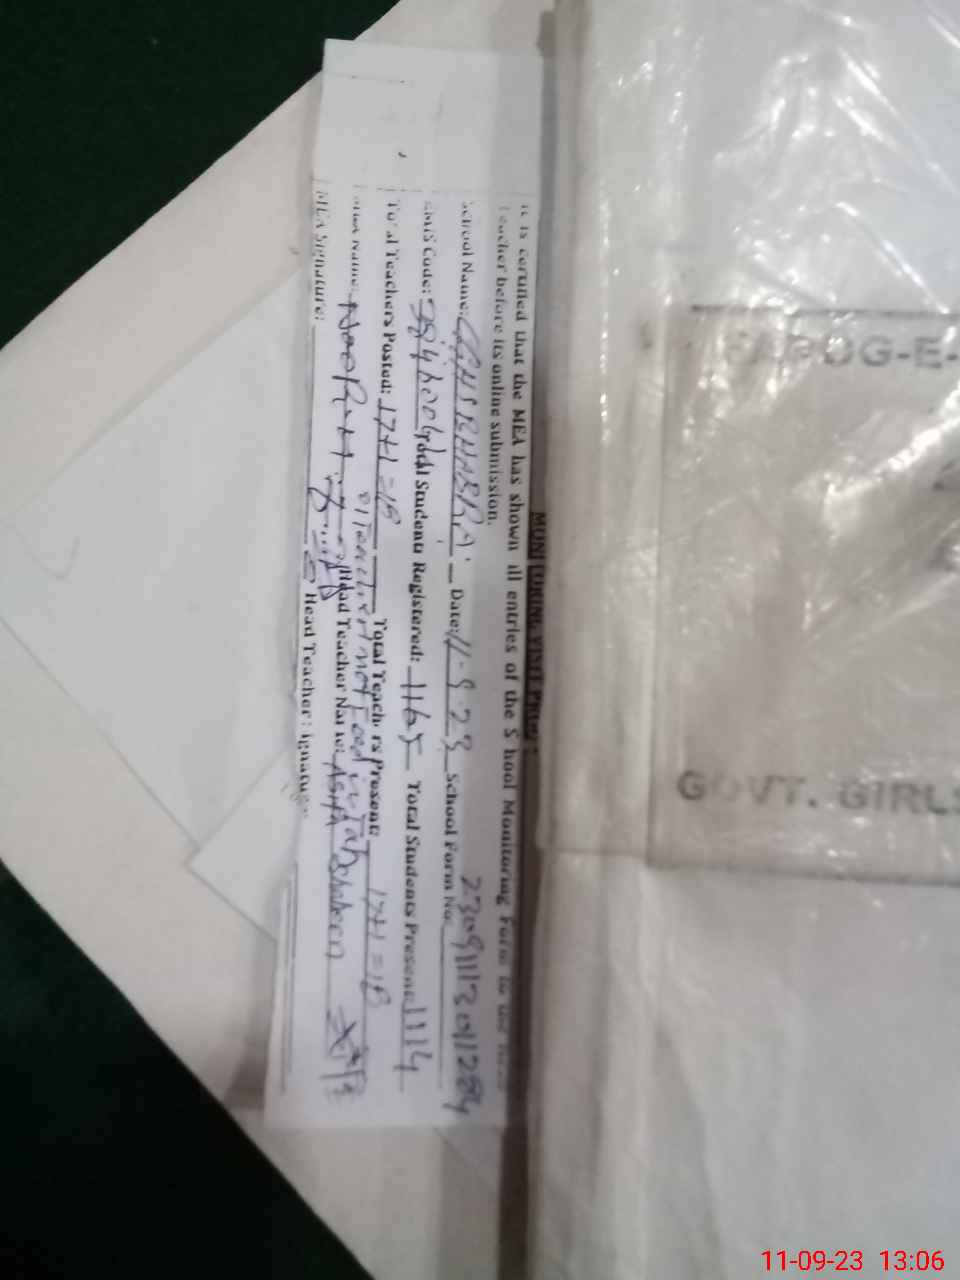 MONITORING VISIT PROOF
It is certified that the MEA has shown all entries of the School Monitoring Form to the Head
Teacher before its online submission.
School Name: Date: 11-9-23 School Form No: 23091113011284
EMIS Code: Total Students Registered: 1165 Total Students Present: 1114
Total Teachers Posted: 17+1=18 Total Teachers Present: 17+1=18
01 Teacher not Feed in Tab
MEA Name: Head Teacher Name: Asifa Shaheen
MEA Signature: Head Teacher Signature:
GOVT. GIRLS
11-09-23 13:06